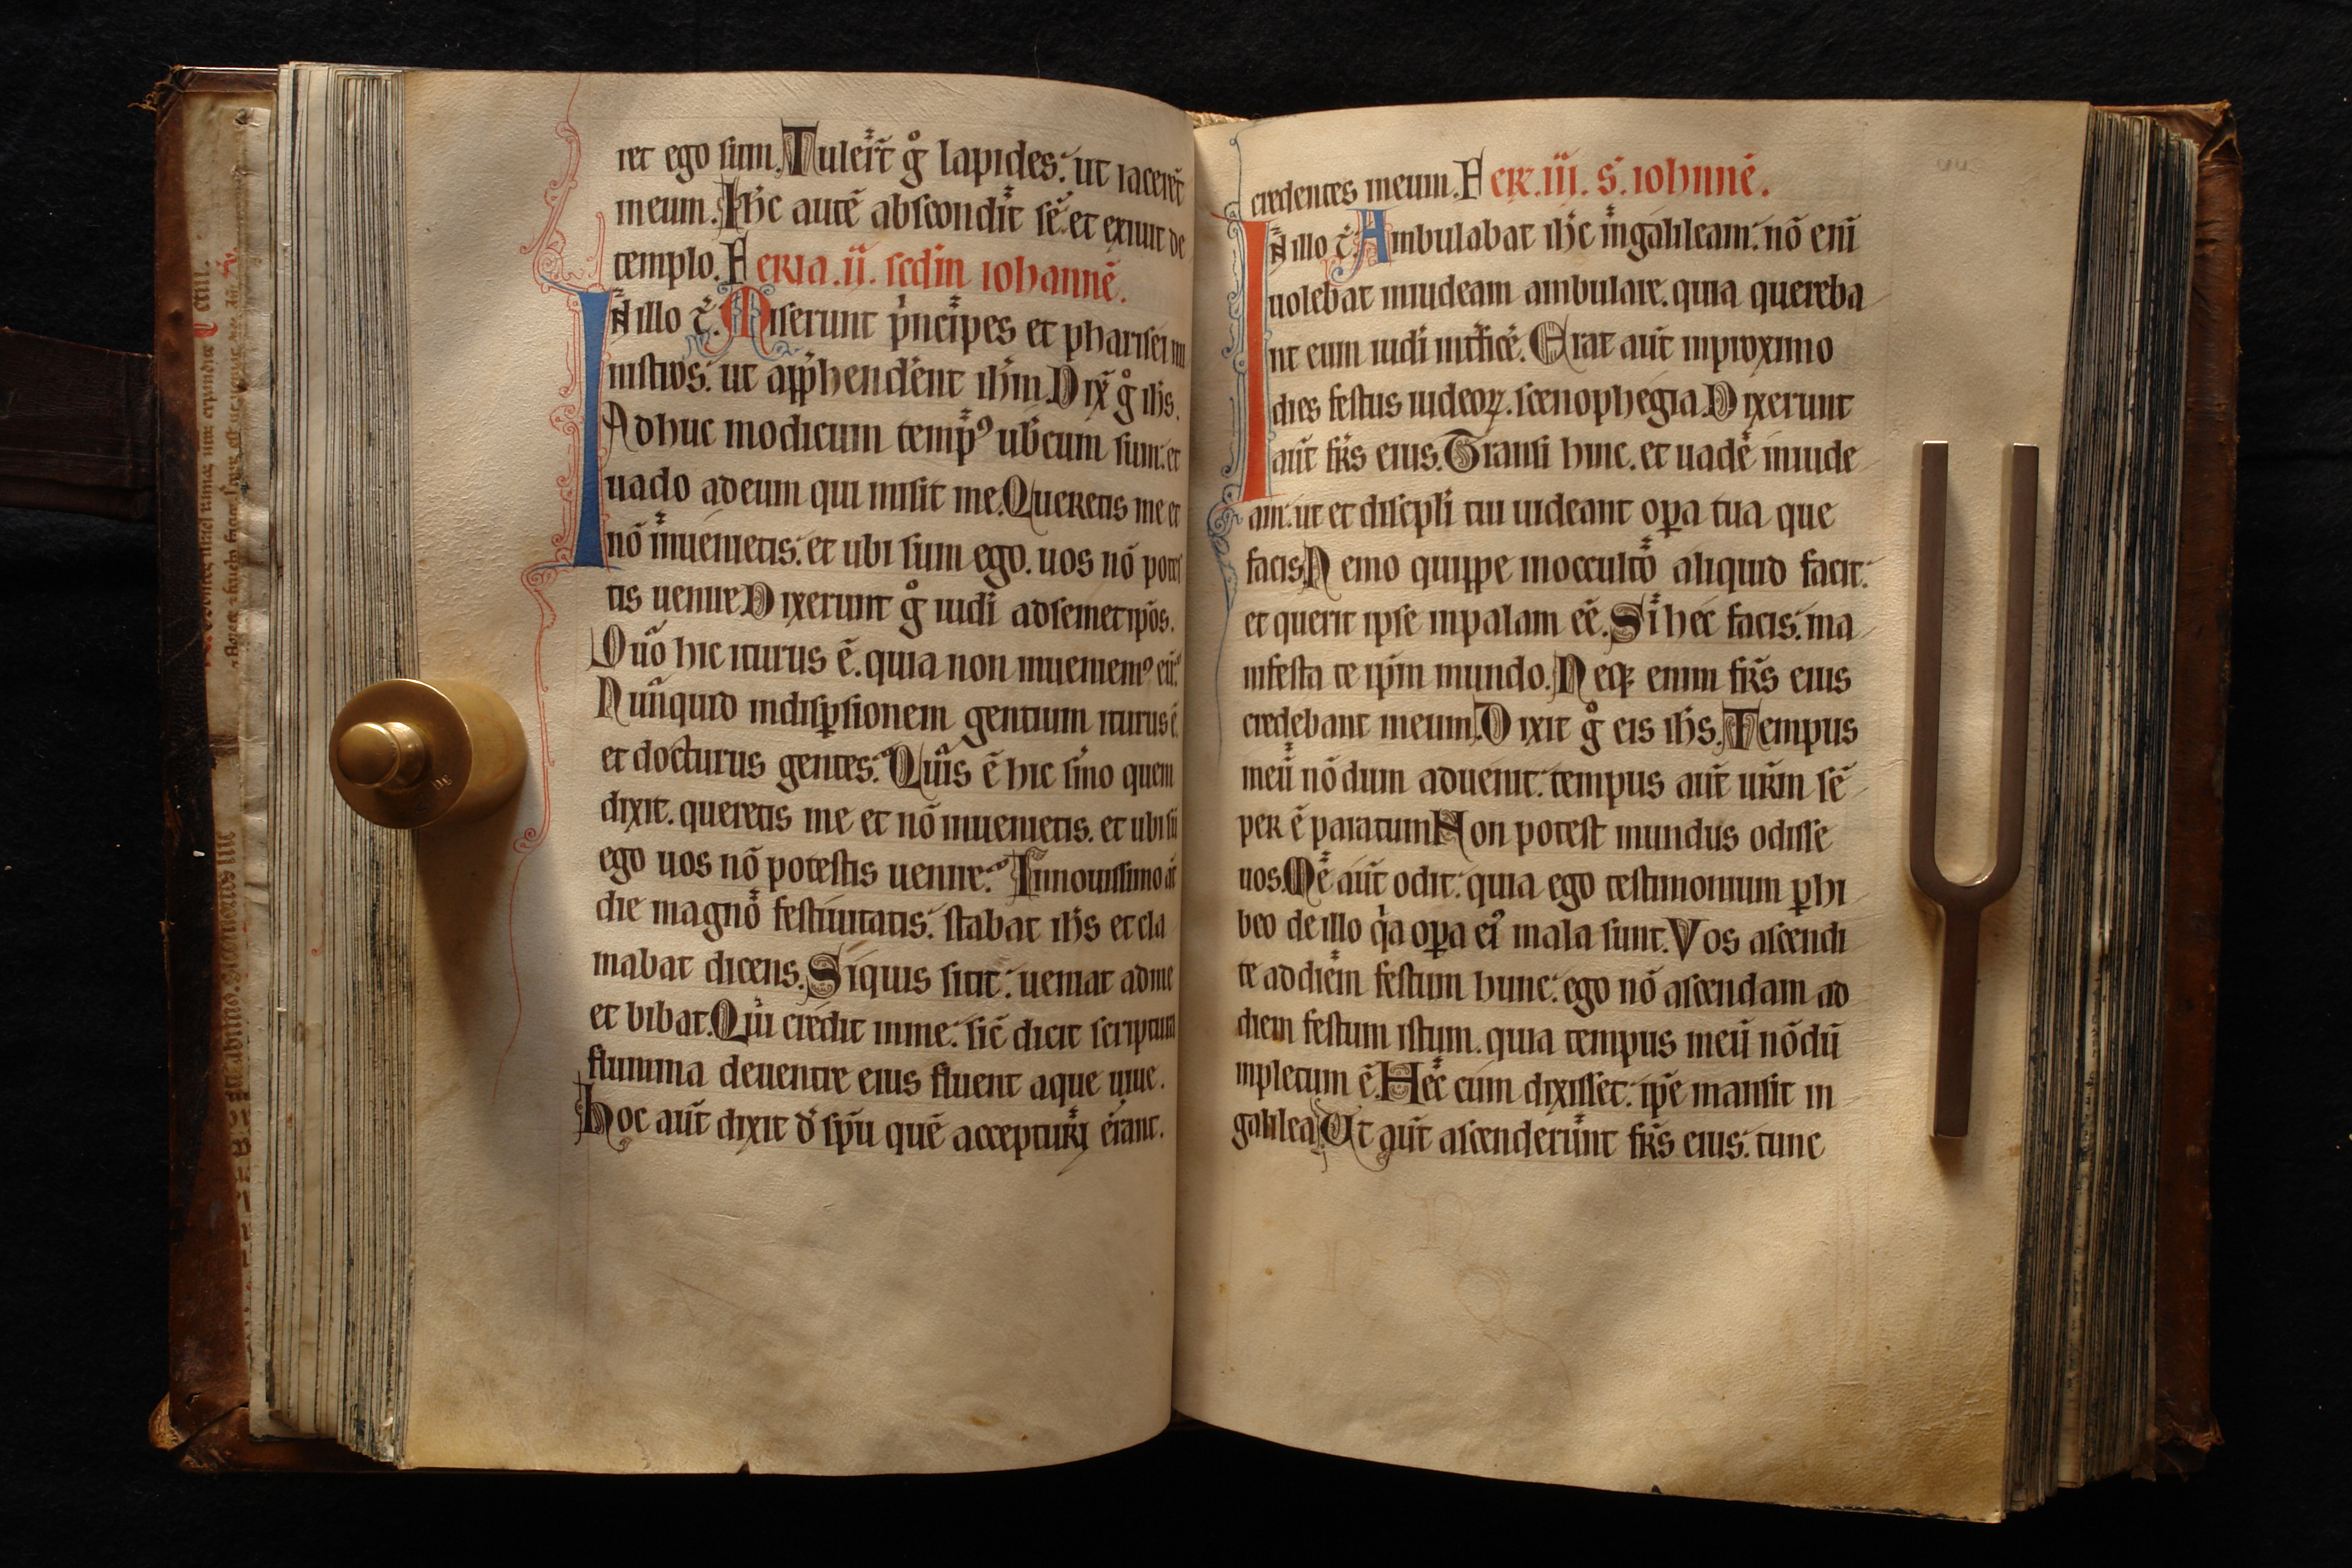 ret ego sum. Tuler̄t g̊ lapides: ut iacerēt
meum. Ih̄c autē abscondit sē et exiuit de
templo. Feria .ii. sedm iohannē.
In illo t̄. Miserunt p̄ncipes et pharisei mi
nistros: ut app̄hendēnt ih̄m. Dix̄ g̊ ih̄s.
Adhuc modicum temp᷒ uob̄cum sum: et
uado adeum qui misit me. Queretis me et
nō inuenietis: et ubi sum ego. uos nō potes
tis uenire. Dixerunt g̊ iudi adsemetip̄os.
Quō hic iturus ē. quia non inueniem᷒ eū.
Nūnquid indisp̱sionem gentium iturus ē.
et docturus gentes. Quis ē hic s̄mo quem
dixit. queretis me et nō inuenietis. et ubi sū
ego uos nō potestis uenire. Innouissimo āt
die magno festiuitatis: stabat ih̄s et cla
mabat dicens. Siquis sitit: ueniat adme
et bibat. Qui credit inme: sic̄ dicit scriptura
flumina deuentre eius fluent aque uiue.
hoc aūt dixit d̄ sp̄u quē accepturi erant.
credentes ineum. Fer. iii. s. iohnnē.
In illo t̄. Ambulabat ih̄c ingalileam: nō eni̅
uolebat iniudeam ambulare. quia quereba
nt eum iudi int̄ficē. Erat aūt inproximo
dies festus iudeoꝝ. scenophegia. Dixerunt
aūt fr̄s eius. Transi hinc. et uade iniude
am: ut et discipl̄i tui uideant oꝑa tua que
facis. Nemo quippe inocculto aliquid facit:
et querit ipse inpalam eē. Si hec facis: ma
nifesta te ip̄m mundo. Neqꝫ enim fr̄s eius
credebant ineum. Dixit g̊ eis ih̄s. Tempus
meū nōdum aduenit: tempus aūt ur̄m sē
per ē paratum. Non potest mundus odisse
uos. Me aūt odit: quia ego testimonium ꝑhi
beo de illo qͣa oꝑa ei᷒ mala sunt. Vos ascendi
te addiem festum hunc: ego nō ascendam ad
diem festum istum. quia tempus meū nōdū
inpletum ē. Hec cum dixisset: ip̄e mansit in
galilea. Ut aūt ascenderunt fr̄s eius: tunc